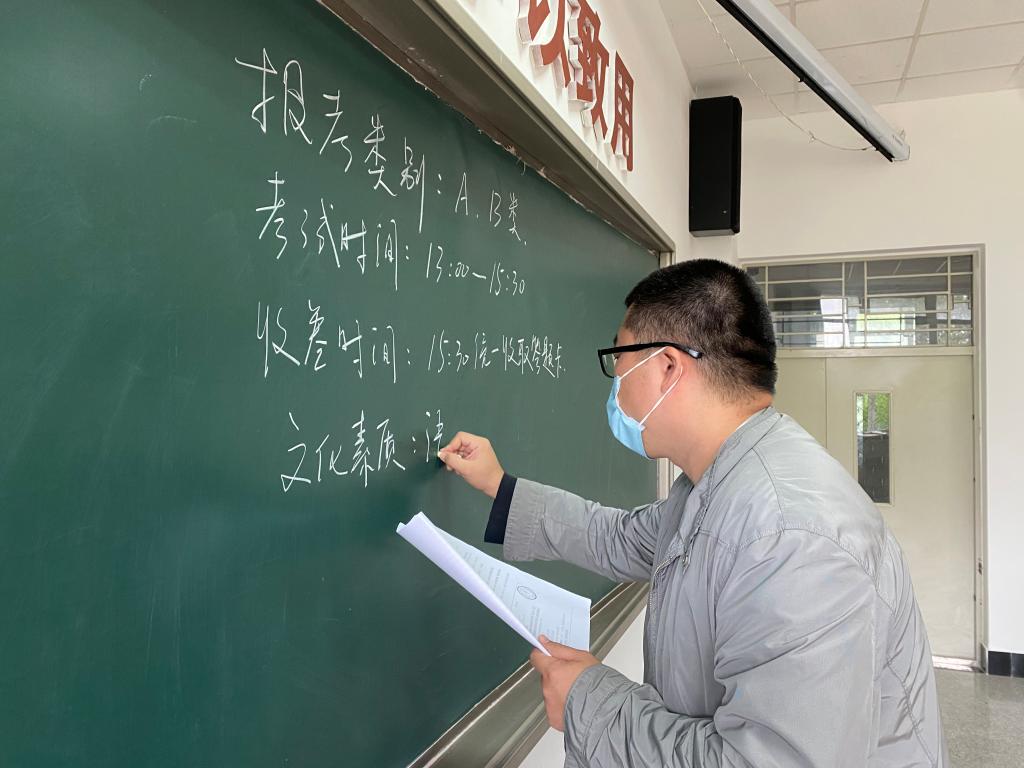 以致用
报考类别：A、B类
考试时间：13:00—15:30
收卷时间：15:30统一收取答题卡
文化素质：语